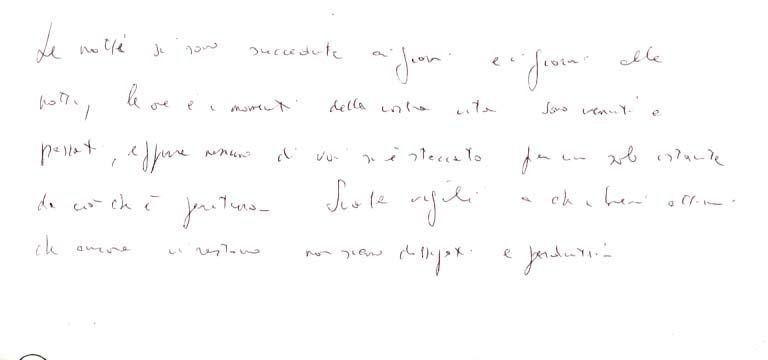 Le notti si sono succedute ai giorni e i giorni alle
notti, le ore e i momenti della vostra vita sono venuti e
passati, eppure nessuno di voi si è staccato per un solo istante
da ciò che è perituro. Siate vigili che i brevi attimi
che ancora vi restano non siano dissipati e perduti.